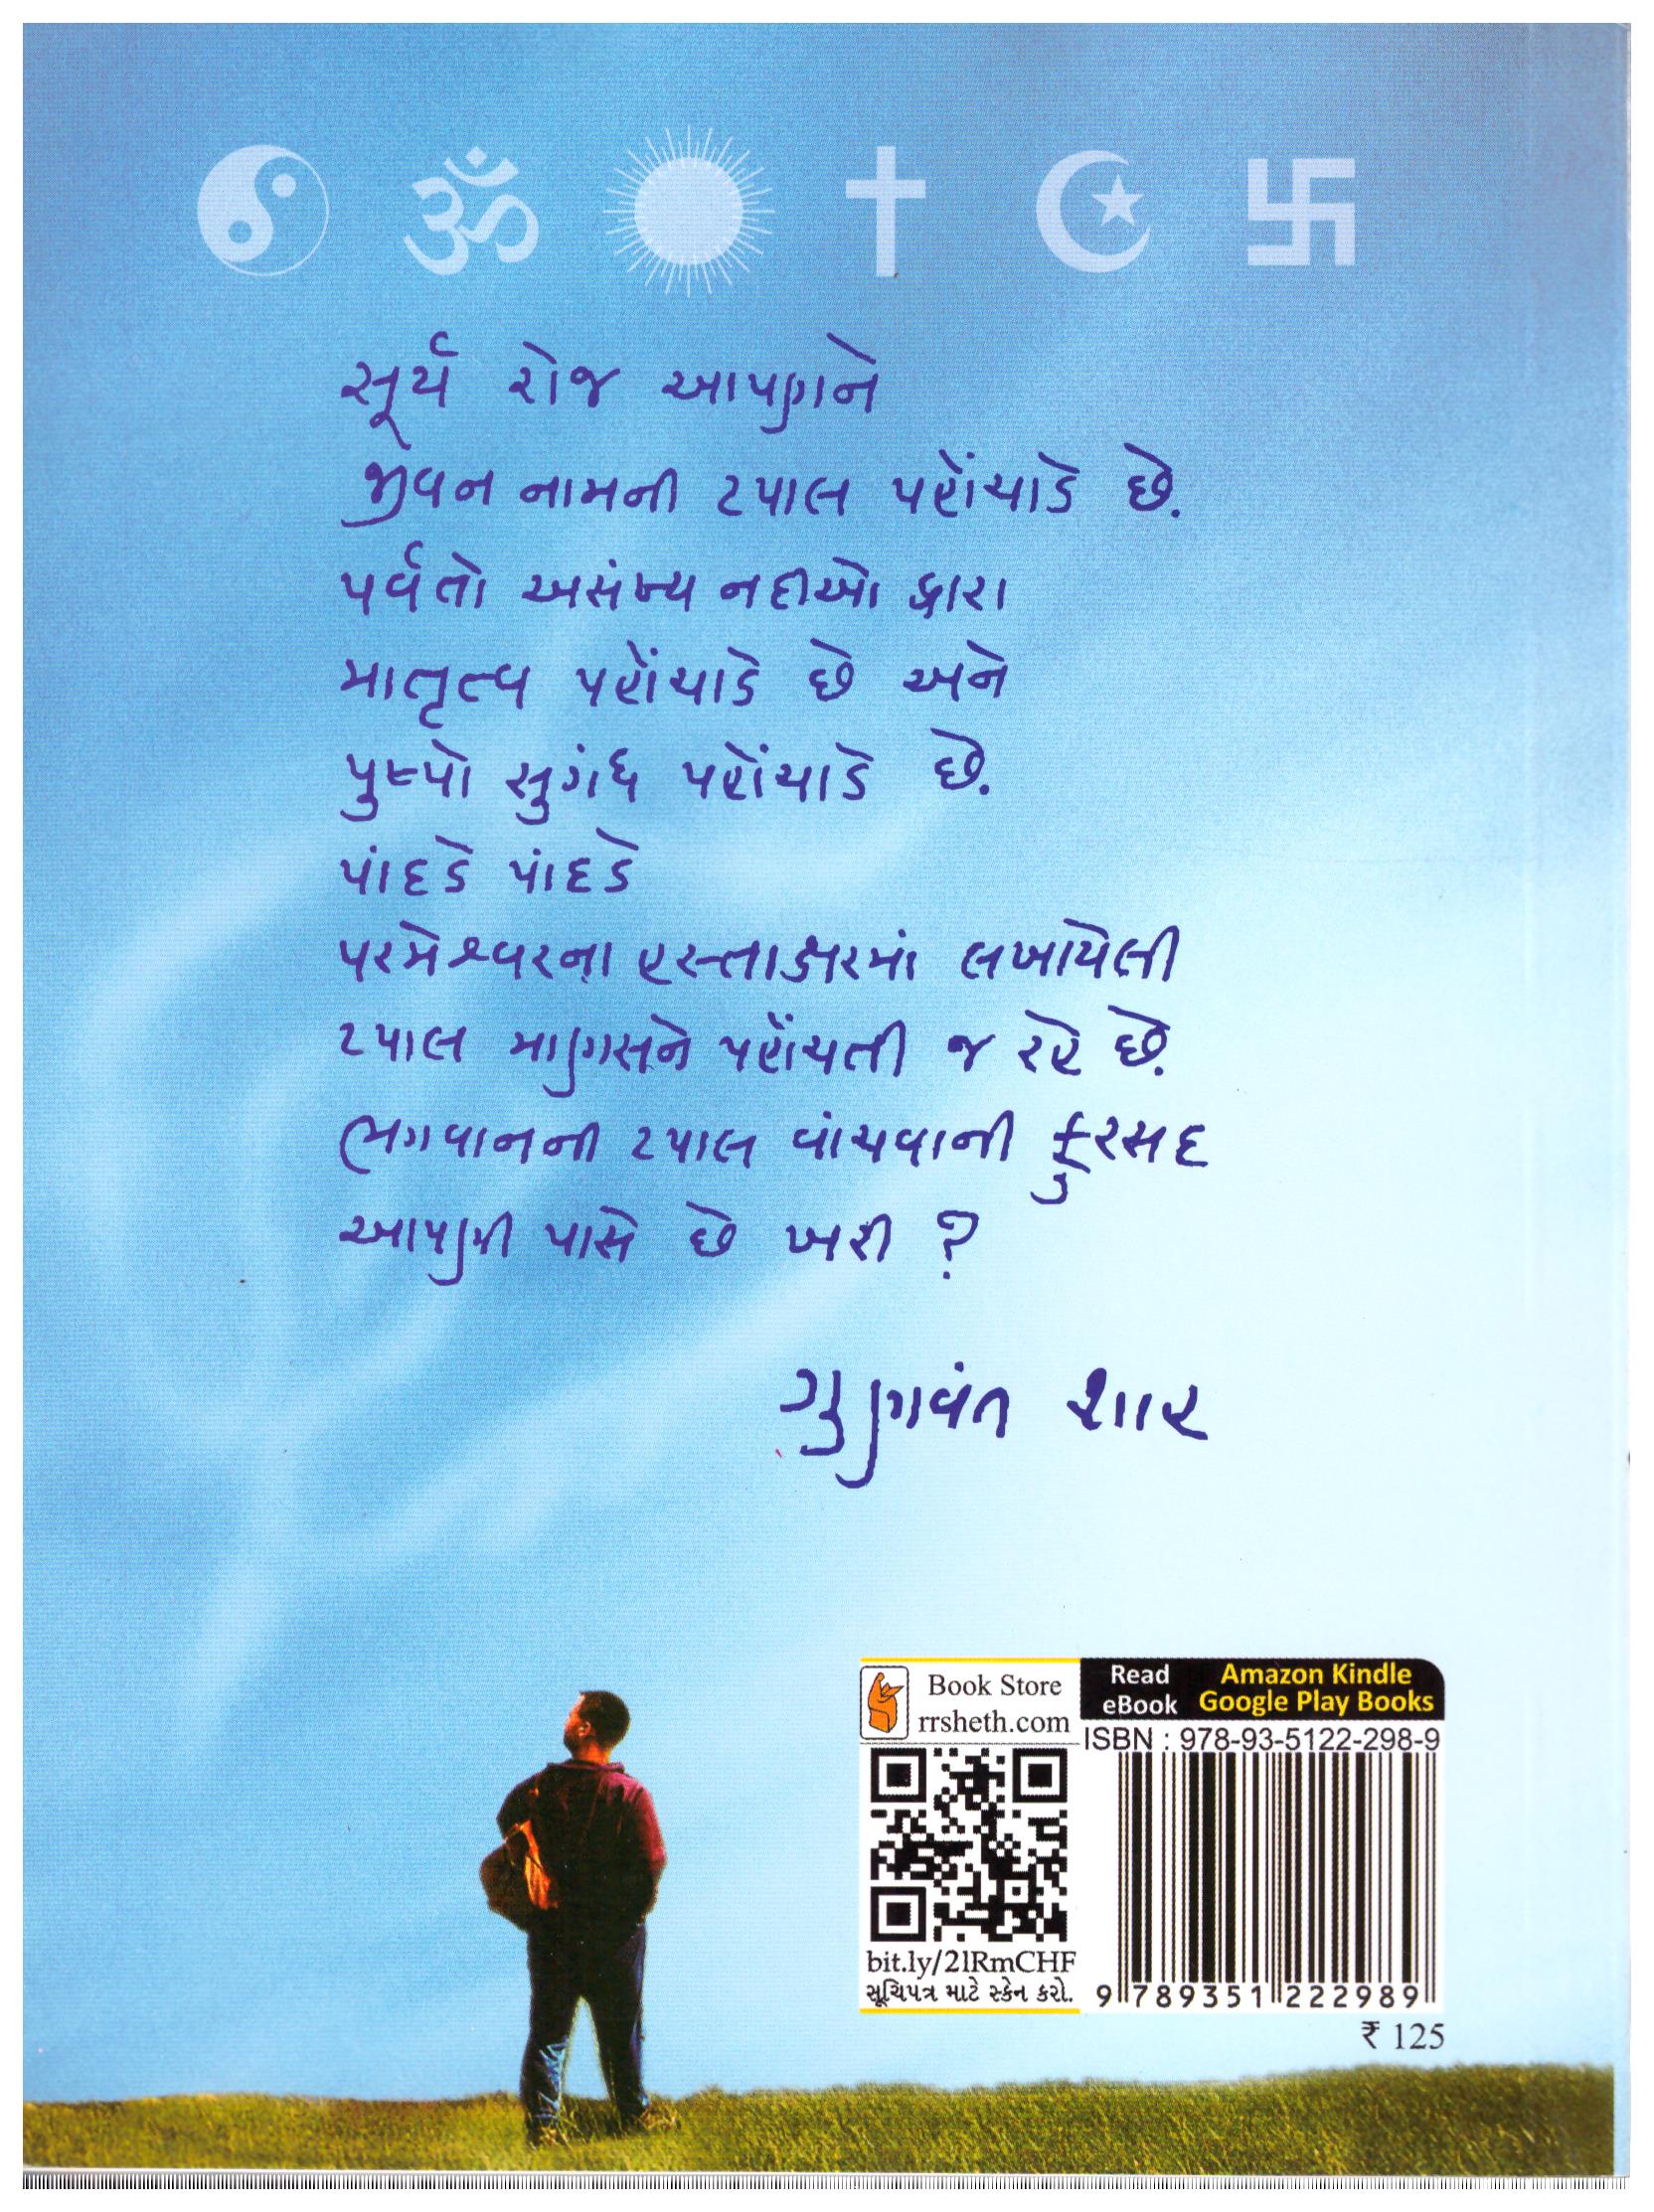 સૂર્ય રોજ આપણને
જીવન નામની ટપાલ પહોંચાડે છે.
પર્વતો અસંખ્ય નદીઓ દ્વારા
માતૃત્વ પહોંચાડે છે અને
પુષ્પો સુગંધ પહોંચાડે છે.
પાંદડે પાંદડે
પરમેશ્વરના હસ્તાક્ષરમાં લખાયેલી
ટપાલ માણસને પહોંચતી જ રહે છે.
ભગવાનની ટપાલ વાંચવાની ફુરસદ
આપણી પાસે છે ખરી ?
ગુણવંત શાહ
Book Store
rrsheth.com
Read
eBook
Amazon Kindle
Google Play Books
ISBN : 978-93-5122-298-9
bit.ly/2lRmCHF
સૂચિપત્ર માટે સ્કેન કરો.
9 789351 222989
₹ 125